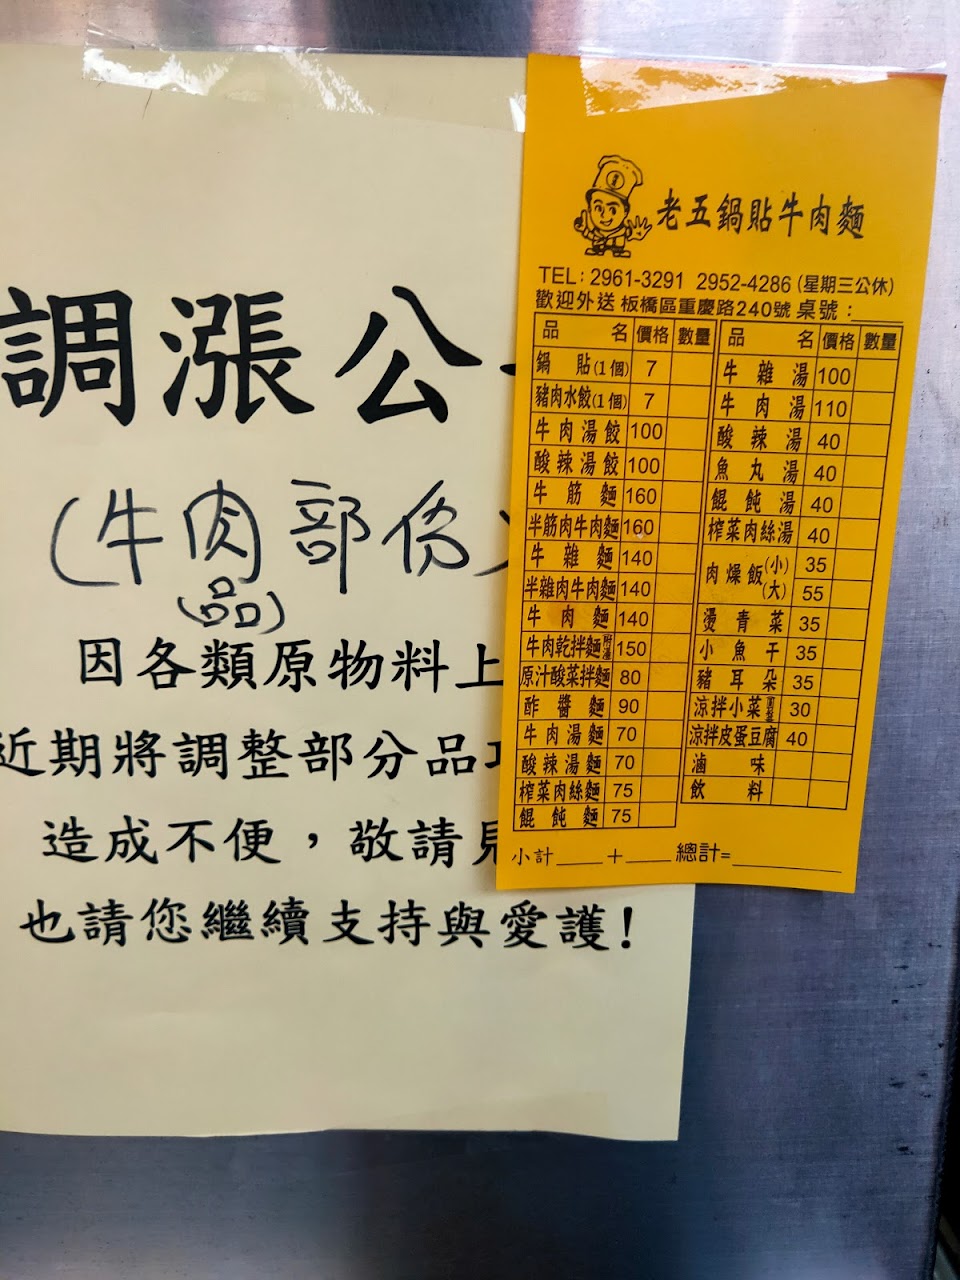 調漲公
(牛肉部份)
(品)
因各類原物料上
近期將調整部分品項
造成不便，敬請見
也請您繼續支持與愛護!
老五鍋貼牛肉麵
TEL: 2961-3291 2952-4286 (星期三公休)
歡迎外送 板橋區重慶路240號 桌號：
品名 價格 數量
鍋貼(1個) 7
豬肉水餃(1個) 7
牛肉湯餃 100
酸辣湯餃 100
牛筋麵 160
半筋肉牛肉麵 160
牛雜麵 140
半雜肉牛肉麵 140
牛肉麵 140
牛肉乾拌麵附湯 150
原汁酸菜拌麵 80
酢醬麵 90
牛肉湯麵 70
酸辣湯麵 70
榨菜肉絲麵 75
餛飩麵 75
品名 價格 數量
牛雜湯 100
牛肉湯 110
酸辣湯 40
魚丸湯 40
餛飩湯 40
榨菜肉絲湯 40
肉燥飯(小) 35
(大) 55
燙青菜 35
小魚干 35
豬耳朵 35
涼拌小菜 30
涼拌皮蛋豆腐 40
滷味
飲料
小計____+____總計=________